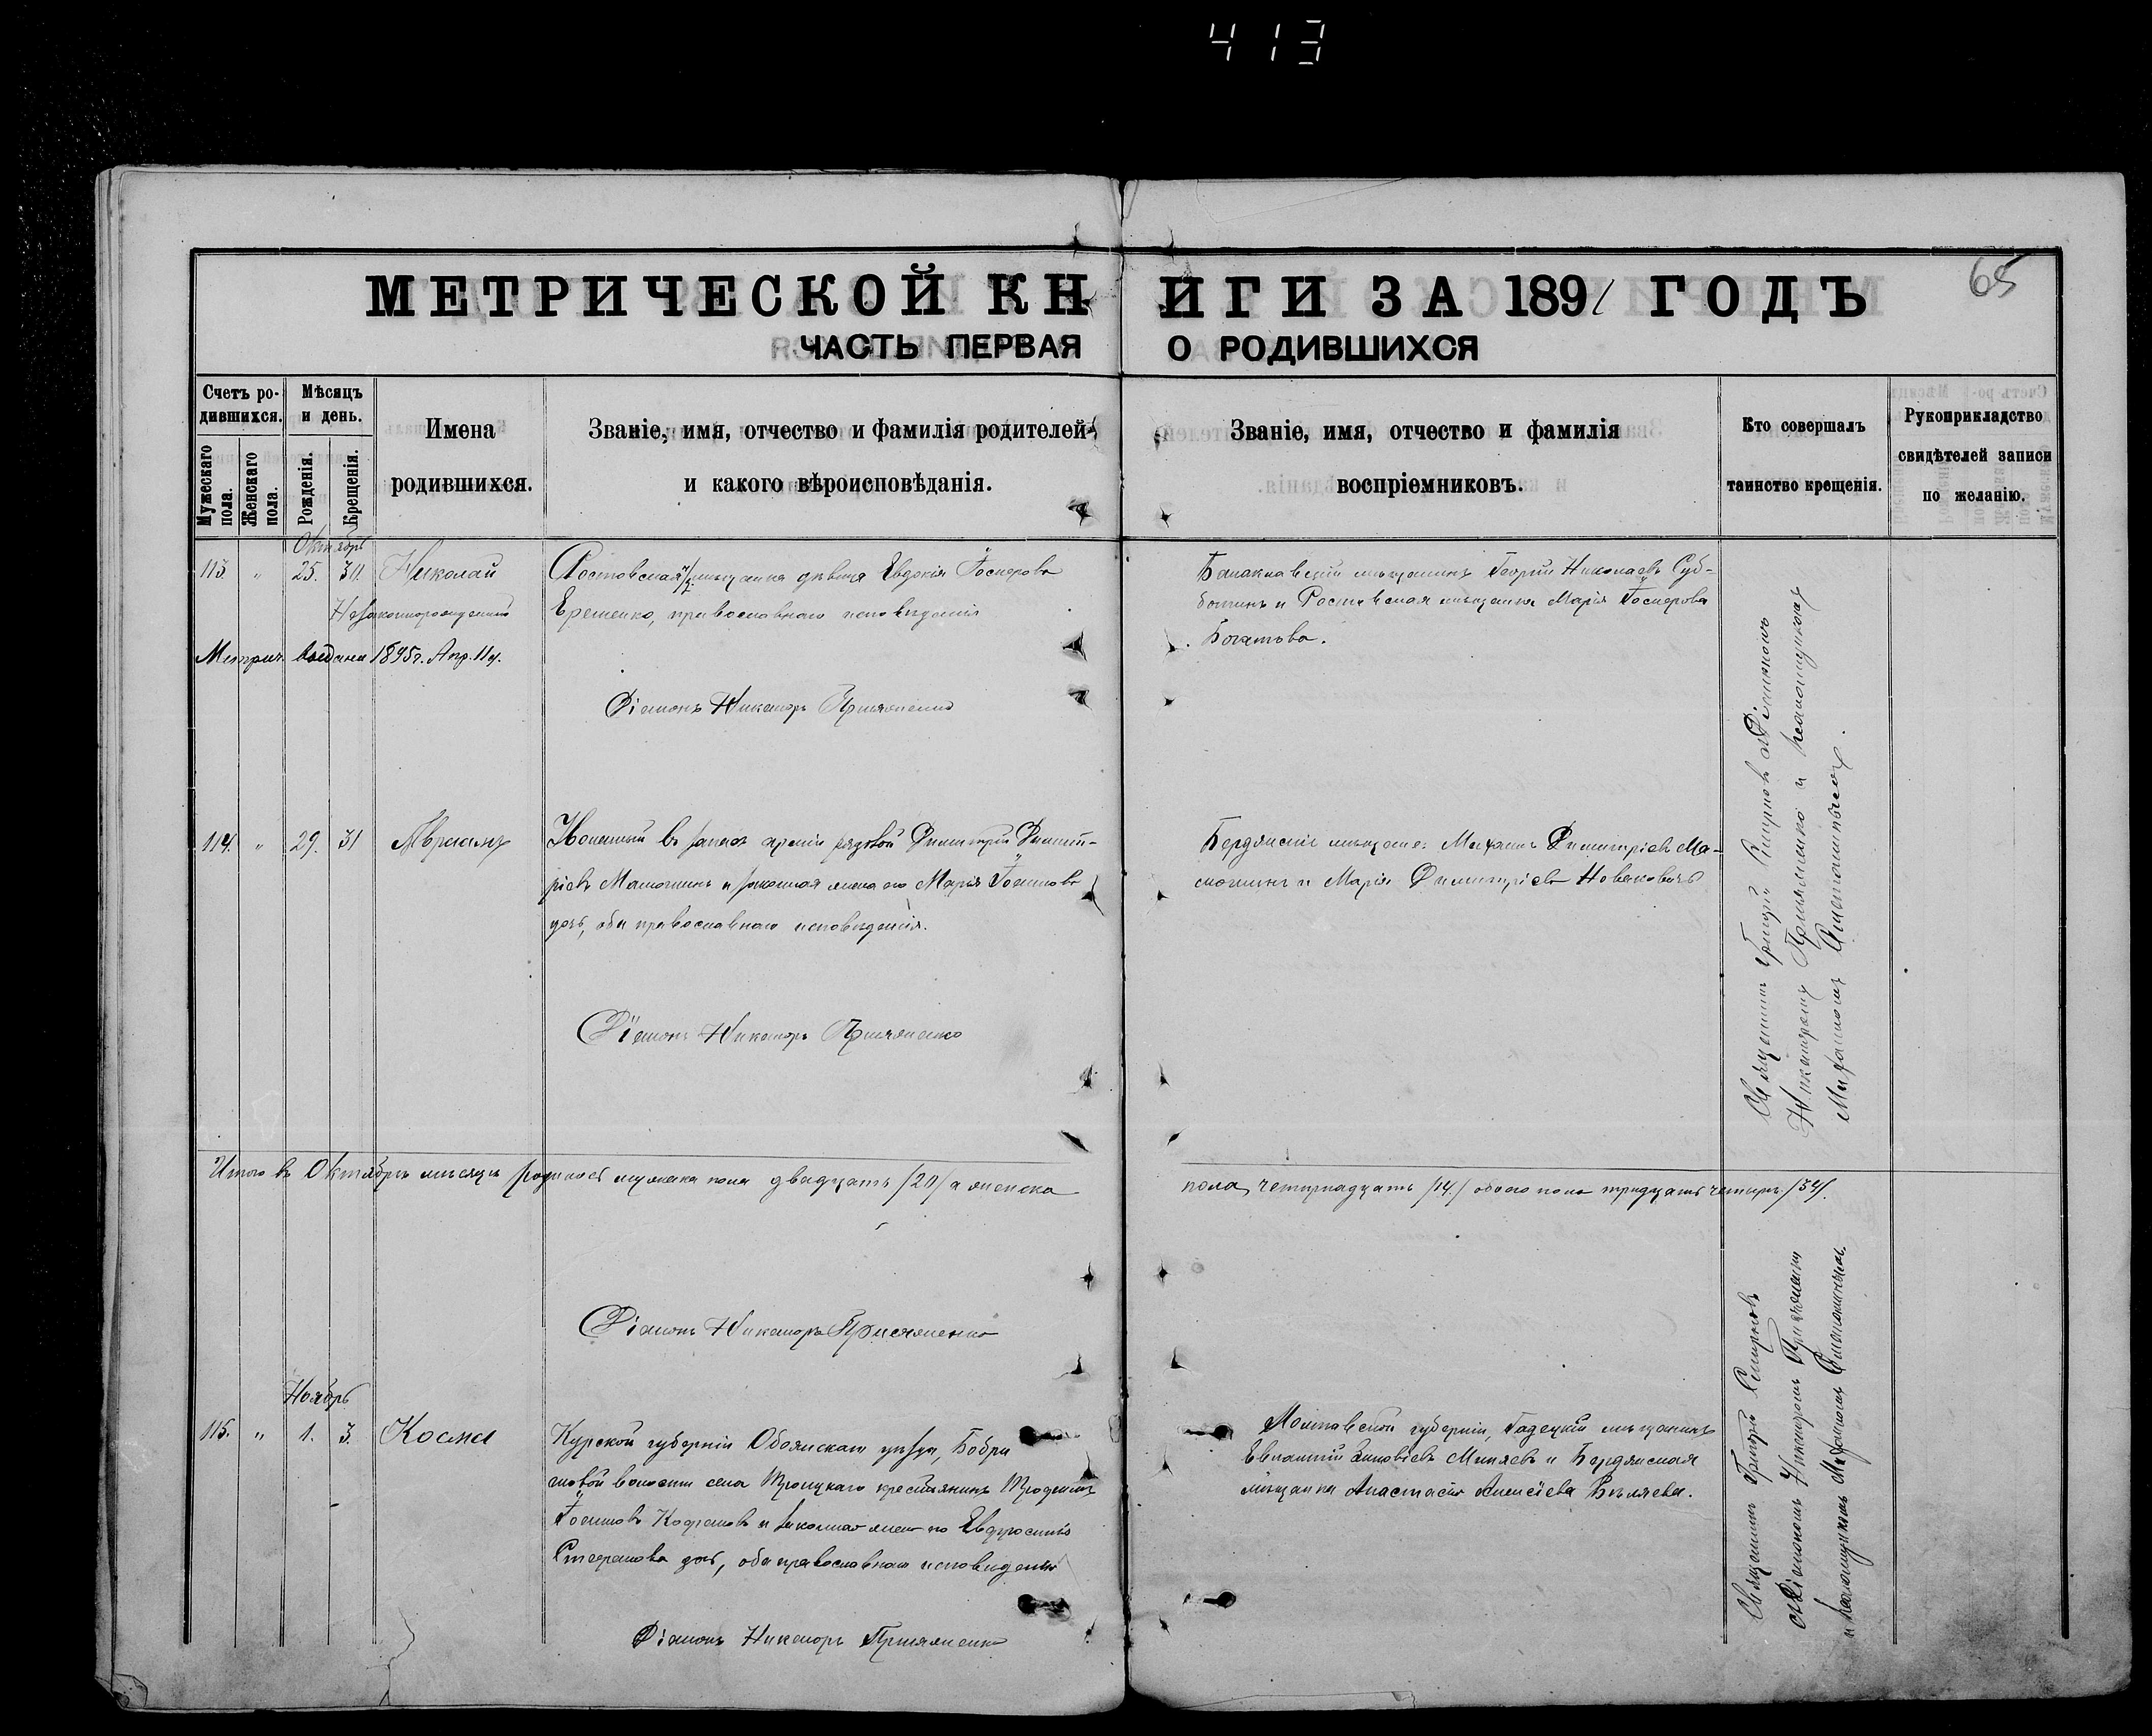 413
65
МЕТРИЧЕСКОЙ КНИГИ ЗА 1891 ГОДЪ
ЧАСТЬ ПЕРВАЯ О РОДИВШИХСЯ
Счетъ родившихся.
Мужескаго пола.
Женскаго пола.
Мѣсяцъ и день.
Рожденія.
Крещенія.
Имена
родившихся.
Званіе, имя, отчество и фамилія родителей,
и какого вѣроисповѣданія.
Званіе, имя, отчество и фамилія
воспріемниковъ.
Кто совершалъ
таинство крещенія.
Рукоприкладство
свидѣтелей записи
по желанію.
Октябрь
113. " 25. 30. Николай
Незаконнорожденный
Метрич. выдана 1895г. Апр. 11 д.
Ростовская мѣщанка дѣвица Евдокія Іосифова
Еременко, православнаго исповѣданія
Діаконъ Никаноръ Присяженко
Балаклавскій мѣщанинъ Георгій Николаевъ Суб-
ботинъ и Ростовская мѣщанка Марія Іосифова
Богатова.
Священникъ Григорій Смирновъ съ Діакономъ
Никаноромъ Присяженко и псаломщикомъ
Михаиломъ
114. " 29. 31
въ запасѣ арміи рядовой Димитрій Димит-
ріевъ и законная жена его Марія Іосифова
дочь, оба православнаго исповѣданія.
Діаконъ Никаноръ Присяженко
Бердянскіе мѣщане: Михаилъ Димитріевъ Ма-
и Марія Димитріева Новаковичъ
Итого въ Октябрѣ мѣсяцѣ родилось мужеска пола двадцать /20/ а женска
пола, четырнадцать /14/ обоего пола тридцать четыре /34/.
Діаконъ Никаноръ Присяженко
Ноябрь
115. " 1. 3. Косма
Курской губерніи Обоянскаго уѣзда, Бобры
шовой волости села Троицкаго крестьянинъ
Іосифовъ и законная жена его Евфросинія
Стефанова дочь, оба православнаго исповѣданія
Діаконъ Никаноръ Присяженко
Полтавской губерніи, Гадяцкій мѣщанинъ
Евпатій Зиновіевъ Миняевъ и Бердянская
мѣщанка Анастасія Алексіева Бѣляева.
Священникъ Григорій Смирновъ
съ Діакономъ Никаноромъ Присяженко
и псаломщикомъ Михаиломъ